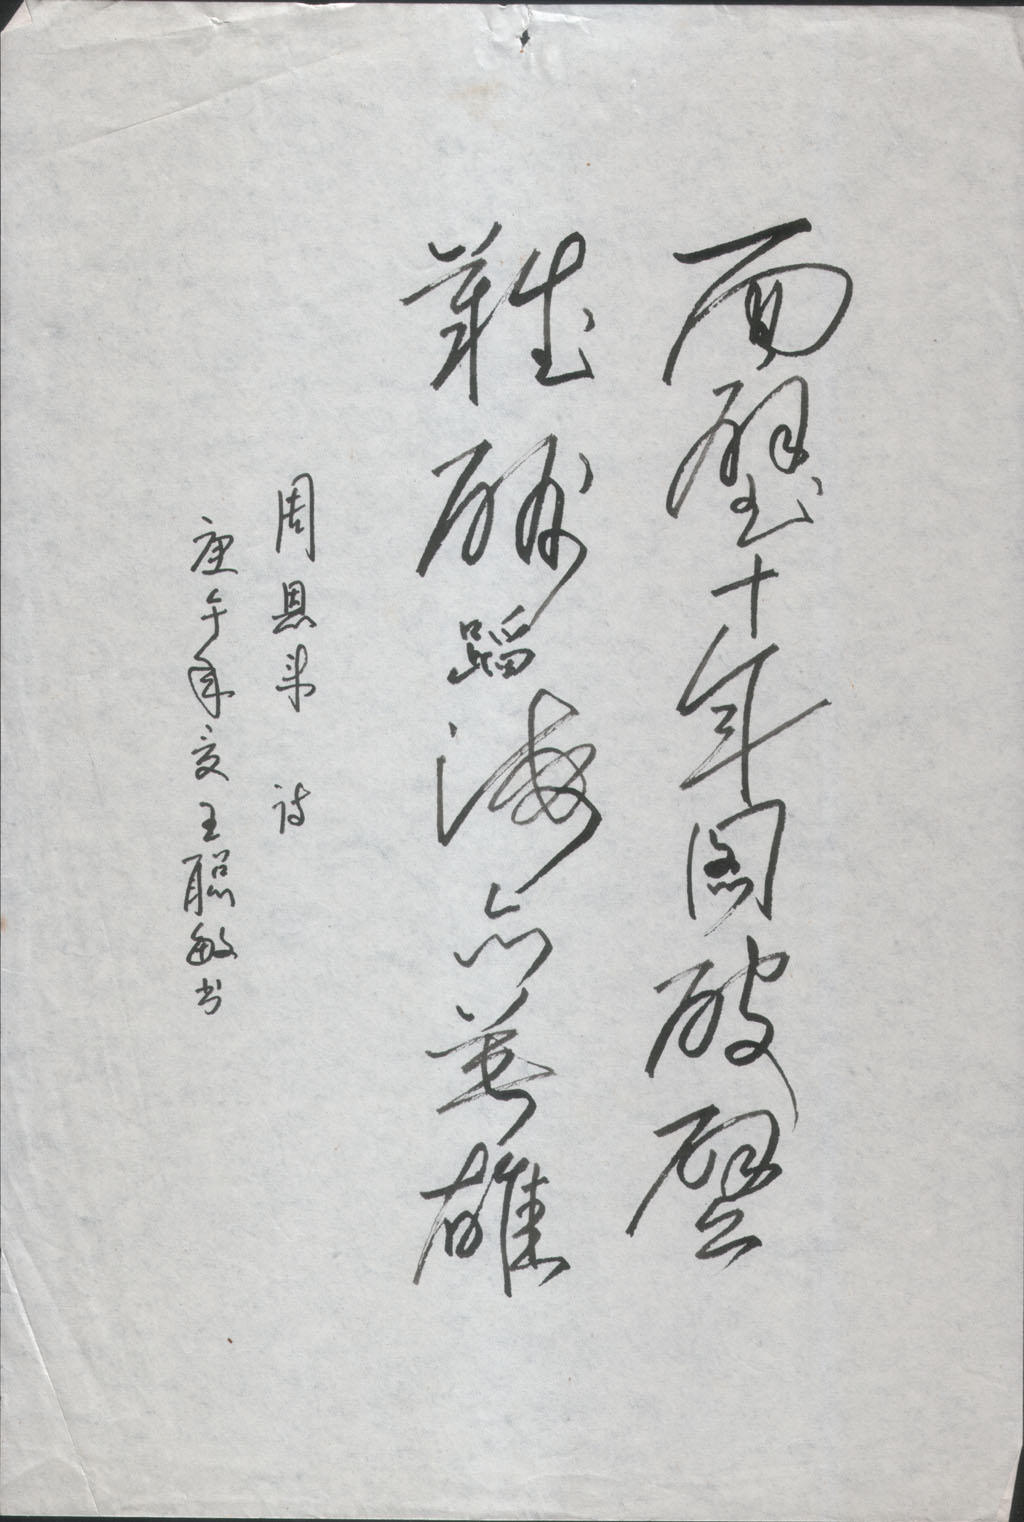 面壁十年图破壁
難酬蹈海亦英雄
周恩来 诗
庚午年夏王聪敏书